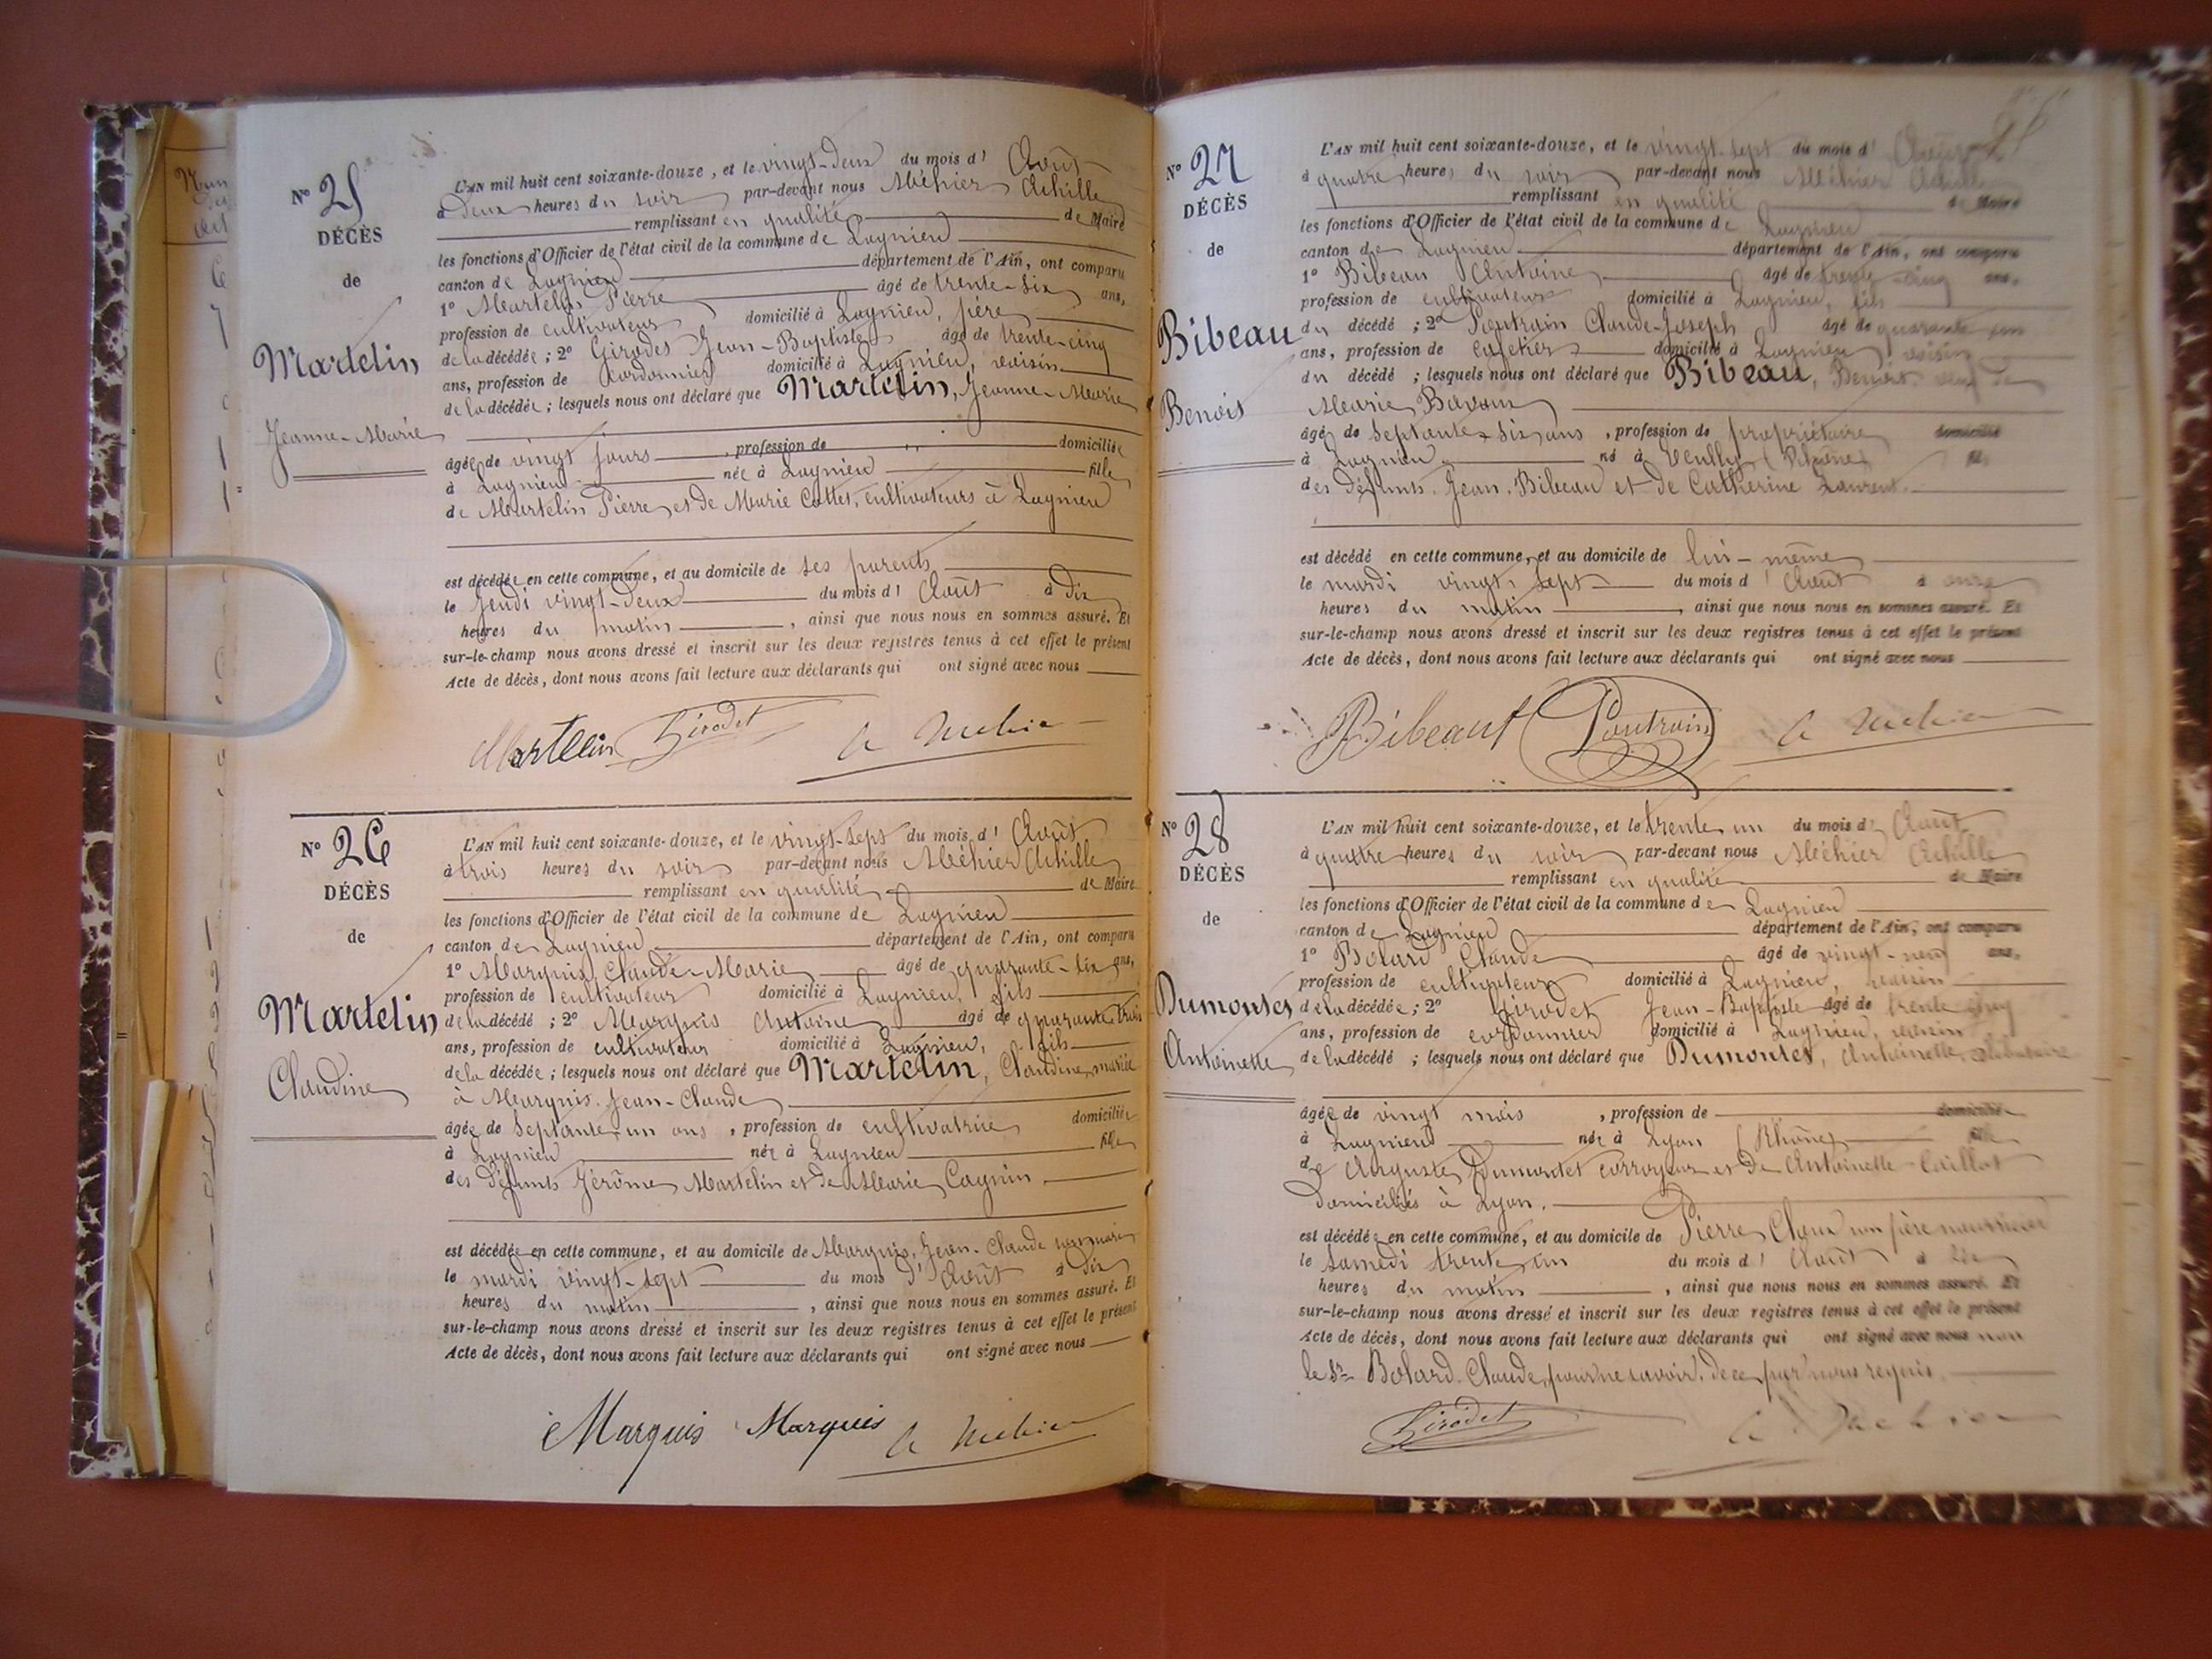 N° 25
DÉCÈS
de
Martelin
Jeanne-Marie
L'AN mil huit cent soixante-douze, et le vingt-deux du mois d' Août
à deux heures du soir par-devant nous Méhier Achille
remplissant en qualité de Maire
les fonctions d'Officier de l'état civil de la commune de Lagnieu
canton de Lagnieu département de l'Ain, ont comparu
1° Martelin Pierre âgé de trente-six ans,
profession de cultivateur domicilié à Lagnieu, père
de la décédée ; 2° Girodet Jean-Baptiste âgé de trente-cinq
ans, profession de Cordonnier domicilié à Lagnieu, voisin
de la décédée ; lesquels nous ont déclaré que Martelin, Jeanne-Marie
âgée de vingt jours, profession de domiciliée
à Lagnieu née à Lagnieu fille
de Martelin Pierre et de Marie Cottet, cultivateurs à Lagnieu
est décédée en cette commune, et au domicile de ses parents
le Jeudi vingt-deux du mois d' Août à dix
heures du matin, ainsi que nous nous en sommes assuré. Et
sur-le-champ nous avons dressé et inscrit sur les deux registres tenus à cet effet le présent
Acte de décès, dont nous avons fait lecture aux déclarants qui ont signé avec nous
Martelin Girodet A Mehier
N° 26
DÉCÈS
de
Martelin
Claudine
L'AN mil huit cent soixante-douze, et le vingt-sept du mois d' Août
à trois heures du soir par-devant nous Méhier Achille
remplissant en qualité de Maire
les fonctions d'Officier de l'état civil de la commune de Lagnieu
canton de Lagnieu département de l'Ain, ont comparu
1° Marquis Claude-Marie âgé de quarante-six ans,
profession de cultivateur domicilié à Lagnieu, fils
de la décédé ; 2° Marquis Antoine âgé de quarante-trois
ans, profession de cultivateur domicilié à Lagnieu, fils
de la décédée ; lesquels nous ont déclaré que Martelin, Claudine, mariée
à Marquis Jean-Claude
âgée de septante-un ans, profession de cultivatrice domiciliée
à Lagnieu née à Lagnieu fille
des défunts Jérôme Martelin et de Marie Cagnin
est décédée en cette commune, et au domicile de Marquis, Jean-Claude son mari
le mardi vingt-sept du mois d' Août à dix
heures du matin, ainsi que nous nous en sommes assuré. Et
sur-le-champ nous avons dressé et inscrit sur les deux registres tenus à cet effet le présent
Acte de décès, dont nous avons fait lecture aux déclarants qui ont signé avec nous
Marquis Marquis A Mehier
N° 27
DÉCÈS
de
Bibeau
Benoit
L'AN mil huit cent soixante-douze, et le vingt-sept du mois d' Août
à quatre heures du soir par-devant nous Méhier Achille
remplissant en qualité de Maire
les fonctions d'Officier de l'état civil de la commune de Lagnieu
canton de Lagnieu département de l'Ain, ont comparu
1° Bibeau Antoine âgé de trente-cinq ans,
profession de cultivateur domicilié à Lagnieu, fils
du décédé ; 2° Poutrain Claude-Joseph âgé de quarante-un
ans, profession de cafetier domicilié à Lagnieu, voisin
du décédé ; lesquels nous ont déclaré que Bibeau, Benoit, veuf de
Marie
âgé de septante-six ans, profession de propriétaire domicilié
à Lagnieu né à fils
des défunts Jean Bibeau et de Catherine Laurent
est décédé en cette commune, et au domicile de lui-même
le mardi vingt-sept du mois d' Août à onze
heures du matin, ainsi que nous nous en sommes assuré. Et
sur-le-champ nous avons dressé et inscrit sur les deux registres tenus à cet effet le présent
Acte de décès, dont nous avons fait lecture aux déclarants qui ont signé avec nous
Bibeaut Poutrain A Mehier
N° 28
DÉCÈS
de
Dumontet
Antoinette
L'AN mil huit cent soixante-douze, et le trente-un du mois d' Août
à quatre heures du soir par-devant nous Méhier Achille
remplissant en qualité de Maire
les fonctions d'Officier de l'état civil de la commune de Lagnieu
canton de Lagnieu département de l'Ain, ont comparu
1° Bolard Claude âgé de vingt-neuf ans,
profession de cultivateur domicilié à Lagnieu, voisin
de la décédée ; 2° Girodet Jean-Baptiste âgé de trente-cinq
ans, profession de cordonnier domicilié à Lagnieu, voisin
de la décédé ; lesquels nous ont déclaré que Dumontet, Antoinette, célibataire
âgée de vingt mois, profession de domiciliée
à Lagnieu née à Lyon (Rhône) fille
de Auguste Dumontet corroyeur et de Antoinette Caillot
domiciliés à Lyon.
est décédée en cette commune, et au domicile de Pierre son père nourricier
le Samedi trente-un du mois d' Août à dix
heures du matin, ainsi que nous nous en sommes assuré. Et
sur-le-champ nous avons dressé et inscrit sur les deux registres tenus à cet effet le présent
Acte de décès, dont nous avons fait lecture aux déclarants qui ont signé avec nous non
le Sr Bolard Claude, pour ne savoir, de ce par nous requis.
Girodet A Mehier